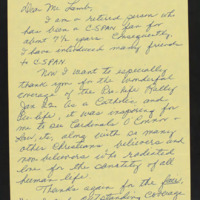 Dear Mr. Lamb,
I am a retired person who
has been a C-SPAN fan for
about 7½ years. Consequently,
I have introduced many friends
to C-SPAN
Now I want to especially
thank you for the wonderful
coverage of the Pro-life Rally
Jan 22. As a Catholic and
Pro-lifer, it was inspiring for
me to see Cardinals O'Connor +
Law, etc, along with so many
other Christians believers and
non believers who radiated
love for the sanctity of all
human life.
Thanks again for the free,
outstanding coverage